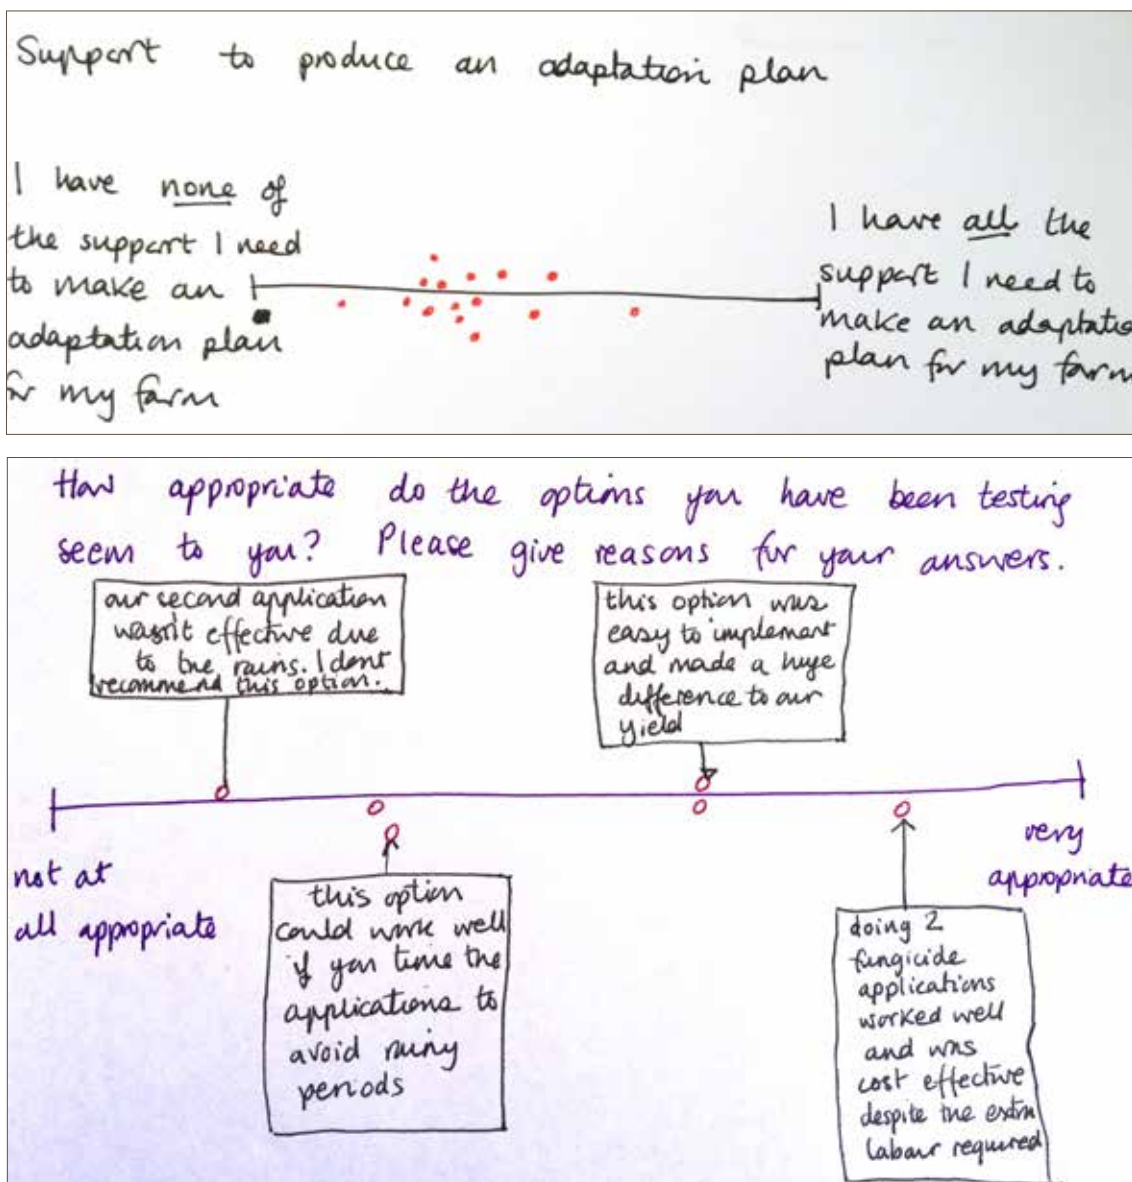 Support to produce an adaptation plan
I have none of
the support I need
to make an
adaptation plan
for my farm
I have all the
support I need to
make an adaptatio
plan for my farm
How appropriate do the options you have been testing
seem to you? Please give reasons for your answers.
our second application
wasn't effective due
to the rains. I dont
recommend this option.
this option was
easy to implement
and made a huge
difference to our
yield
not at
all appropriate
very
appropriate
this option
could work well
if you time the
applications to
avoid rainy
periods
doing 2
fungicide
applications
worked well
and was
cost effective
despite the extra
labour required